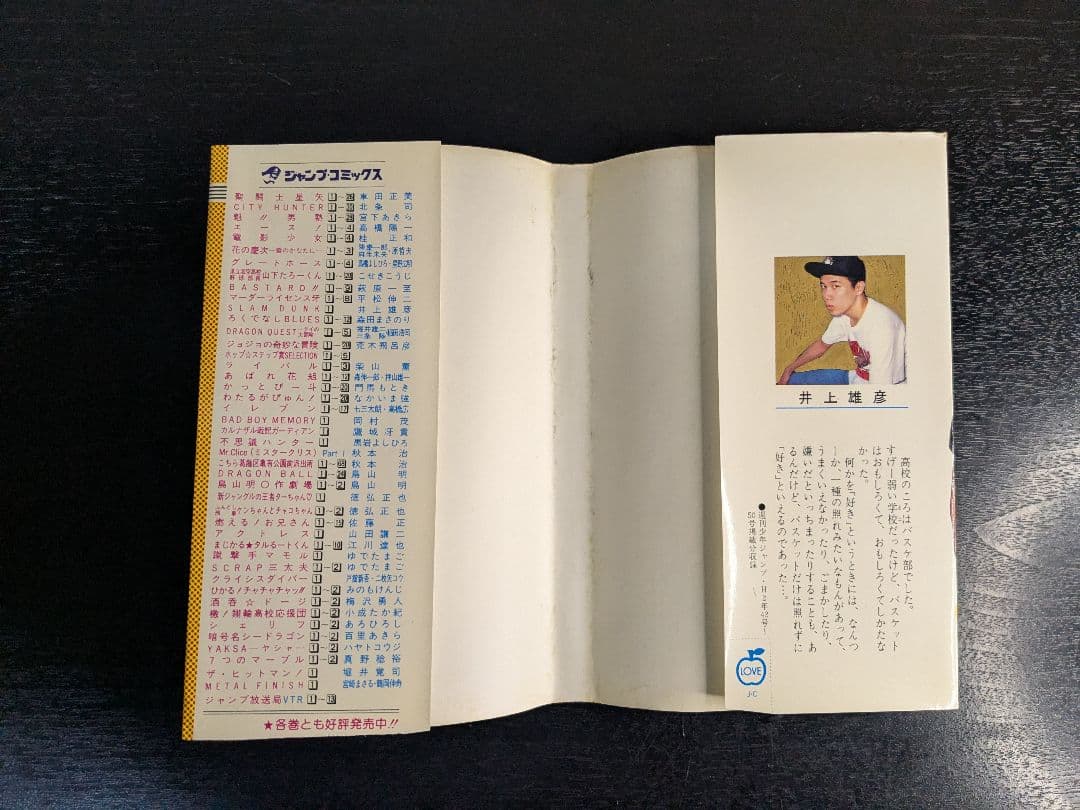 ジャンプ・コミックス
聖闘士星矢 1~28 車田正美
CITY HUNTER 北条 司
魁!!男塾 宮下あきら
エース! 1~4 高橋陽一
電影少女 1~4 桂 正和
花の慶次 1~3 原哲夫
グレートホース 1~4
山下たろーくん こせきこうじ
BASTARD!! 萩原一至
マーダーライセンス牙 平松伸二
SLAM DUNK 1 井上雄彦
ろくでなしBLUES 1~12 森田まさのり
DRAGON QUEST 1~5
ジョジョの奇妙な冒険 荒木飛呂彦
ホップ☆ステップ賞SELECTION
ライバル 1~3 柴山 薫
あばれ花組 1~12
かっとび一斗 門馬もとき
わたるがぴゅん! なかいま強
イレブン 1~17 七三太朗・高橋広
BAD BOY MEMORY 1 岡村 茂
カルナザル戦記ガーディアン 1 鷹城冴貴
不思議ハンター 1 黒岩よしひろ
Mr.Clice(ミスタークリス) Part 1 秋本 治
こちら葛飾区亀有公園前派出所 秋本 治
DRAGON BALL 鳥山 明
鳥山明○作劇場 1~2 鳥山 明
新ジャングルの王者ターちゃん♡ 1 徳弘正也
ケンちゃんとチャコちゃん 1~2 徳弘正也
燃える!お兄さん 佐藤 正
アクトレス 1 山田譲二
まじかる★タルるートくん 1~10 江川達也
蹴撃手マモル 1 ゆでたまご
SCRAP三太夫 1~2 ゆでたまご
クライシスダイバー 1
ひかる!チャチャチャッ!! 1~2 みのもけんじ
酒呑☆ドージ 1~2 梅沢勇人
檄!翔輪高校応援団 1~2 小成たか紀
シェリフ 1~2 あろひろし
暗号名シードラゴン 1~2 百里あきら
YAKSA―ヤシャ― 1~2 ハヤトコウジ
7つのマーブル 1~2 真野稔裕
ザ・ヒットマン! 1 堀井覚司
METAL FINISH 1 宮崎まさる・鶴岡伸寿
ジャンプ放送局VTR 1~13
★各巻とも好評発売中!!
井上雄彦
高校のころはバスケ部でした。
すげー弱い学校だったけど、バスケット
はおもしろくて、おもしろくてしかたな
かった。
何かを「好き」というときには、なんつ
ーか、一種の照れみたいなもんがあって、
うまくいえなかったり、ごまかしたり、
嫌いだといっちまったりすることも、あ
るんだけど、バスケットだけは照れずに
「好き」といえるのであった…。
●週刊少年ジャンプ・H2年42号~
50号掲載分収録
LOVE
J・C